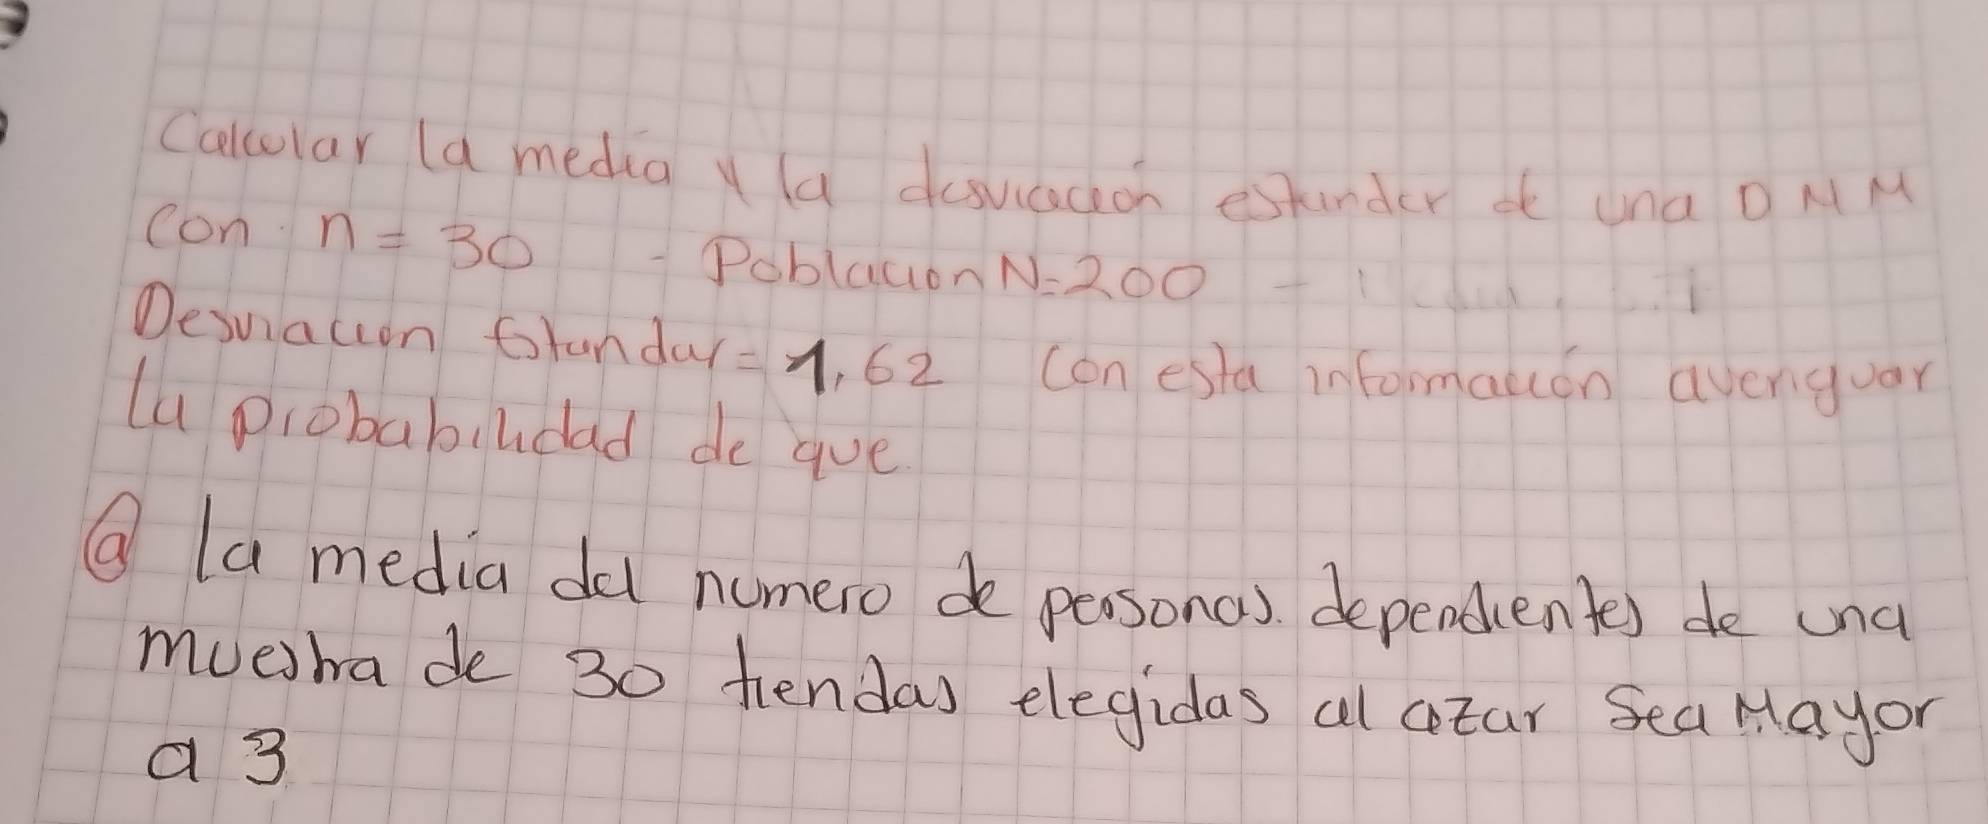 Calcular la media y la desviacion estander de una D M M
con n = 30 - Poblacion N=200 -
Desviacion Estandar = 1,62 con esta información averiguar
la probabilidad de que.
ⓐ la media del numero de personas. dependientes de una
muestra de 30 tiendas elegidas al azar Sea Mayor
a 3